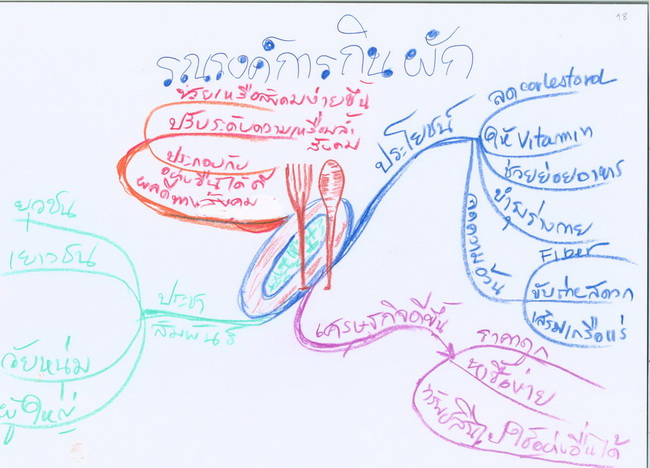 18
รณรงค์การกินผัก
ช่วยเหลือสังคมง่ายขึ้น
ปรับระดับความเหลื่อมล้ำ
สังคม
ประกอบกับ
อย่างอื่นได้ดี
ผลดีทางสังคม
ประโยชน์
ลด corlestorol
ให้ Vitamin
ช่วยย่อยอาหาร
บำรุงร่างกาย
ลดความอ้วน
Fiber
ขับถ่ายสะดวก
เสริมเกลือแร่
ประชา
สัมพันธ์
ยุวชน
เยาวชน
วัยหนุ่ม
ผู้ใหญ่
เศรษฐกิจดีขึ้น
ราคาถูก
หาซื้อง่าย
ไปใช้อย่างอื่นได้